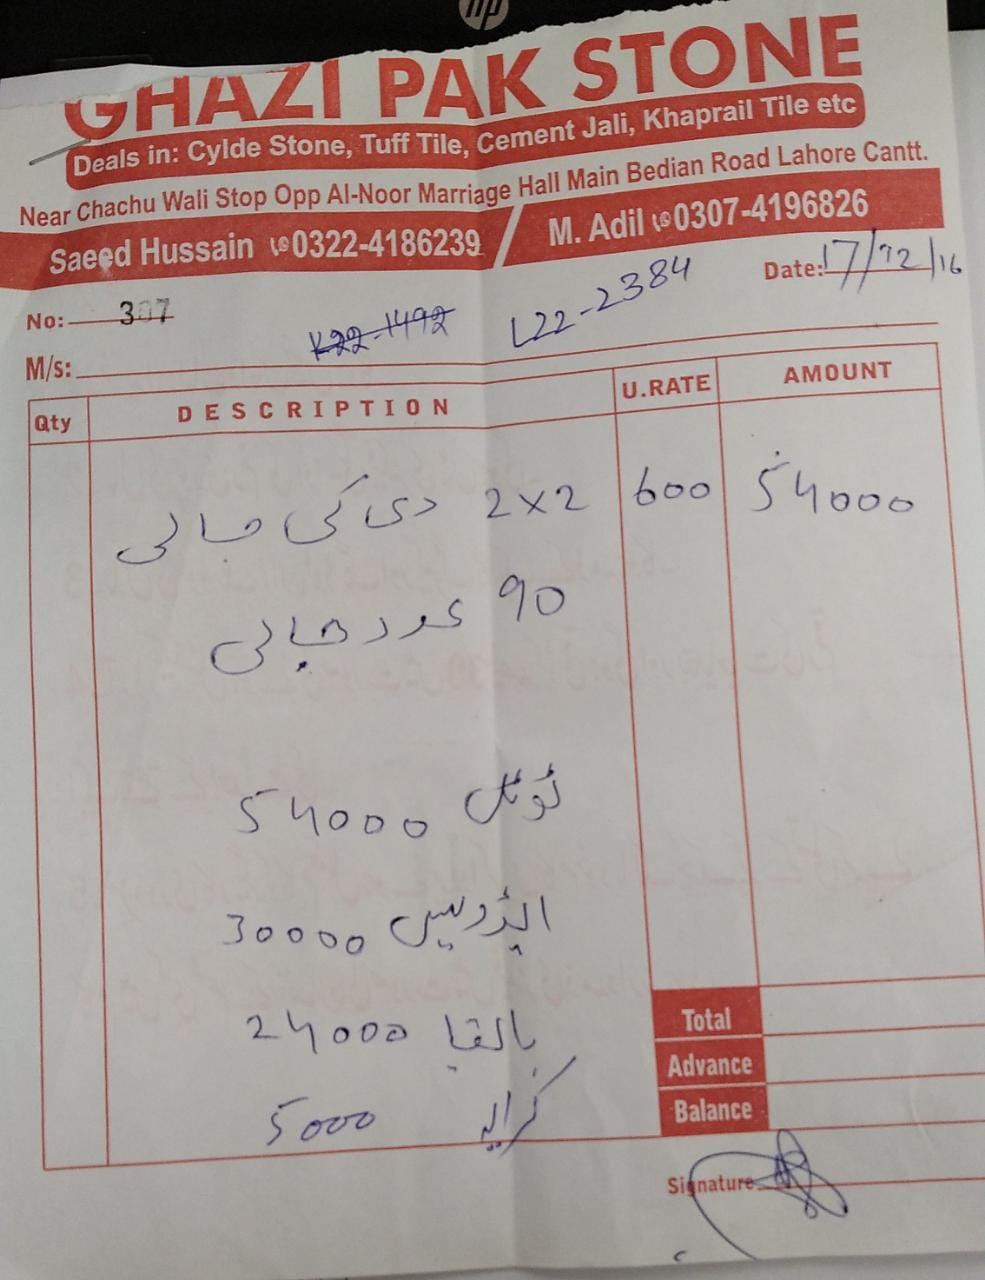 GHAZI PAK STONE
Deals in: Cylde Stone, Tuff Tile, Cement Jali, Khaprail Tile etc
Near Chachu Wali Stop Opp Al-Noor Marriage Hall Main Bedian Road Lahore Cantt.
Saeed Hussain 0322-4186239 / M. Adil 0307-4196826
No: 307 Date: 17/12/16
L22-2384
M/s:
Qty DESCRIPTION U.RATE AMOUNT
2x2 دی کی جالی 600 54000
90 عدد جالی
ٹوٹل 54000
ایڈویس 30000
بالقیا 24000
کرایہ 5000
Total
Advance
Balance
Signature